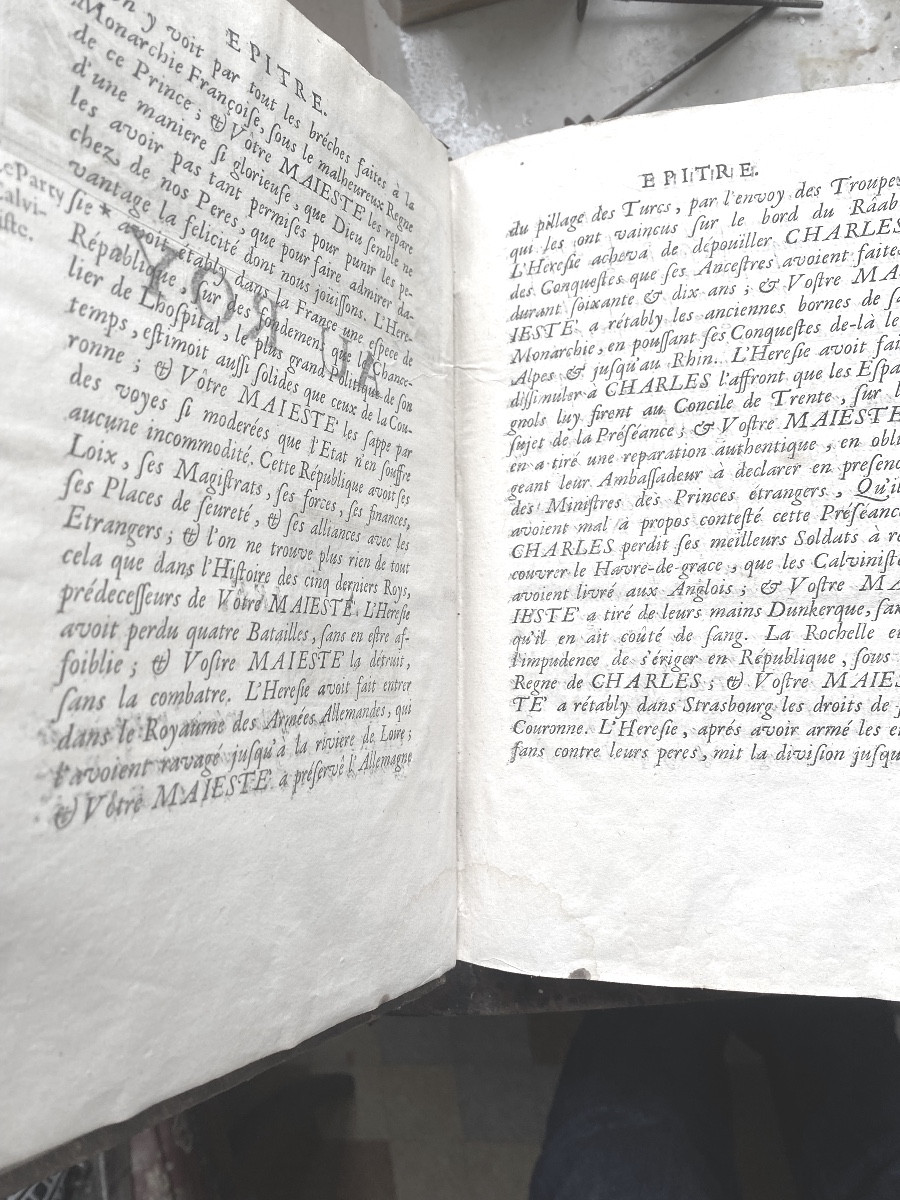 EPITRE.
on y voit par tout les bréches faites à la
Monarchie Françoiſe, ſous le malheureux Regne
de ce Prince ; & Vôtre MAIESTE' les repare
d'une maniere ſi glorieuſe, que Dieu ſemble ne
les avoir pas tant permiſes pour punir les pe-
chez de nos Peres, que pour faire admirer da-
vantage la felicité dont nous joüiſſons. L'Here-
ſie * avoit établÿ dans la France une eſpece de
Le Party
Calvi-
niſte.
République, ſur des fondemens que le Chance-
lier de Lhoſpital, le plus grand Politique de ſon
temps, eſtimoit auſſi ſolides que ceux de la Cou-
ronne ; & Vôtre MAIESTE' les ſappe par
des voyes ſi moderées que l'Etat n'en ſouffre
aucune incommodité. Cette République avoit ſes
Loix, ſes Magiſtrats, ſes forces, ſes finances,
ſes Places de ſeureté, & ſes alliances avec les
Etrangers ; & l'on ne trouve plus rien de tout
cela que dans l'Hiſtoire des cinq derniers Roys,
prédeceſſeurs de Vôtre MAIESTE'. L'Hereſie
avoit perdu quatre Batailles, ſans en eſtre af-
foiblie ; & Voſtre MAIESTE' la détruit,
ſans la combatre. L'Hereſie avoit fait entrer
dans le Royaume des Armées Allemandes, qui
l'avoient ravagé juſqu'à la riviere de Loire ;
& Vôtre MAIESTE' a préſervé l'Allemagne
EPITRE.
du pillage des Turcs, par l'envoy des Troupes
qui les ont vaincus ſur le bord du Râab
L'Hereſie acheva de dépouiller CHARLES
des Conqueſtes que ſes Anceſtres avoient faites
durant ſoixante & dix ans ; & Voſtre MA
IESTE' a rétably les anciennes bornes de ſa
Monarchie, en pouſſant ſes Conqueſtes de-là le
Alpes & juſqu'au Rhin. L'Hereſie avoit fai
diſſimuler à CHARLES l'affront que les Eſpa
gnols luy firent au Concile de Trente, ſur l
ſujet de la Préſéance ; & Voſtre MAIESTE
en a tiré une reparation authentique, en obli
geant leur Ambaſſadeur à déclarer en preſenc
des Miniſtres des Princes étrangers, Qu'il
avoient mal à propos conteſté cette Préſéance
CHARLES perdit ſes meilleurs Soldats à re
couvrer le Havre-de-grace, que les Calviniſte
avoient livré aux Anglois ; & Voſtre MA
IESTE' a tiré de leurs mains Dunkerque, ſan
qu'il en ait coûté de ſang. La Rochelle e
l'impudence de s'ériger en République, ſous
Regne de CHARLES ; & Voſtre MAIES
TE' a rétably dans Strasbourg les droits de ſ
Couronne. L'Hereſie, aprés avoir armé les e
fans contre leurs peres, mit la diviſion juſqu